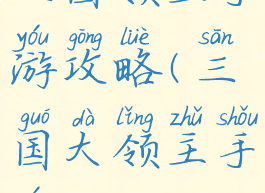 yóu gōng lüè sān
游攻略(三
guó dà lǐng zhǔ shǒu
国大领主手